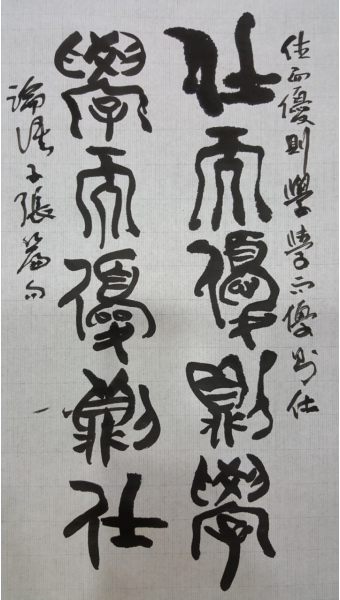 仕而優則學學而優則仕
仕而優則學
學而優則仕
論語子張篇句